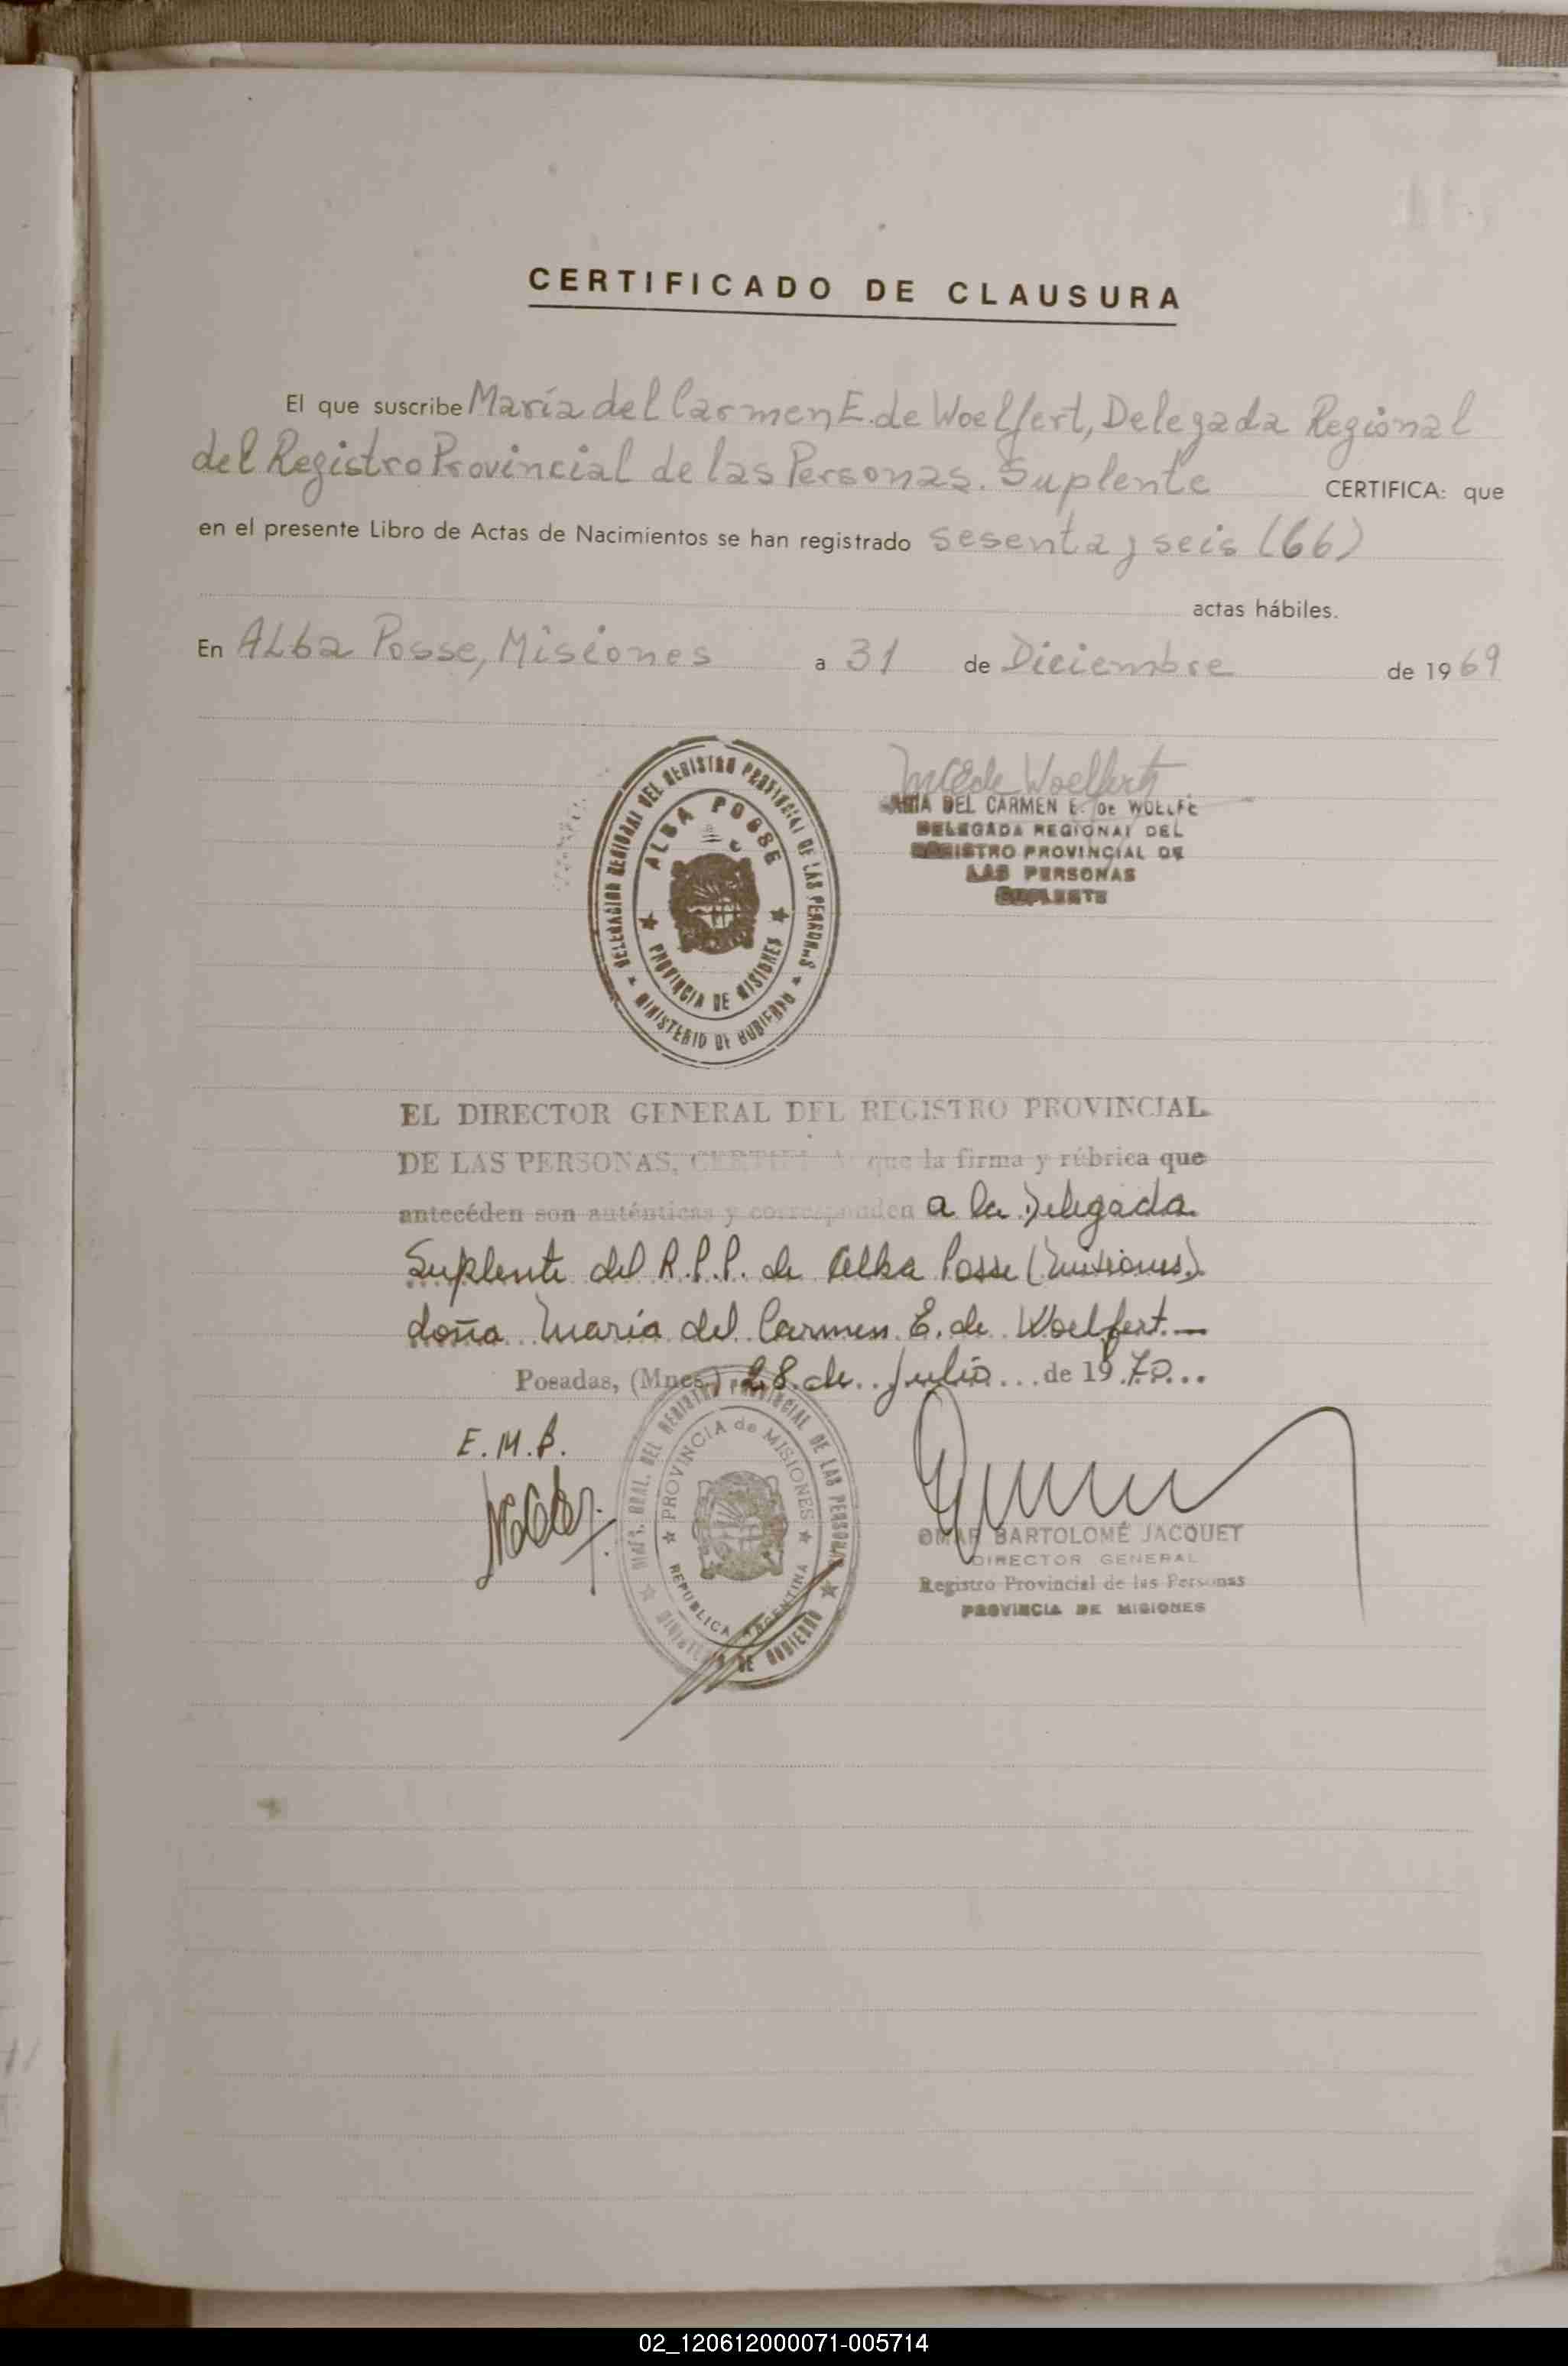 CERTIFICADO DE CLAUSURA
El que suscribe María del Carmen E. de Woelfert, Delegada Regional
del Registro Provincial de las Personas. Suplente CERTIFICA: que
en el presente Libro de Actas de Nacimientos se han registrado sesenta y seis (66)
actas hábiles.
En Alba Posse, Misiones a 31 de Diciembre de 1969
DELEGACION REGIONAL DEL REGISTRO PROVINCIAL DE LAS PERSONAS
ALBA POSSE
PROVINCIA DE MISIONES
MINISTERIO DE GOBIERNO
MCE de Woelfert
ARIA DEL CARMEN E. DE WOELFE
DELEGADA REGIONAL DEL
REGISTRO PROVINCIAL DE
LAS PERSONAS
SUPLENTE
EL DIRECTOR GENERAL DEL REGISTRO PROVINCIAL
DE LAS PERSONAS, CERTIFICA: que la firma y rúbrica que
antecéden son auténticas y corresponden a la Delegada
Suplente del R.P.P. de Alba Posse (Misiones)
doña María del Carmen E. de Woelfert.—
Posadas, (Mnes.) 28 de Julio de 1970...
E.M.B.
DIREC. GRAL. DEL REGISTRO PROVINCIAL DE LAS PERSONAS
PROVINCIA de MISIONES
REPUBLICA ARGENTINA
MINISTERIO DE GOBIERNO
OMAR BARTOLOMÉ JACQUET
DIRECTOR GENERAL
Registro Provincial de las Personas
PROVINCIA DE MISIONES
02_120612000071-005714